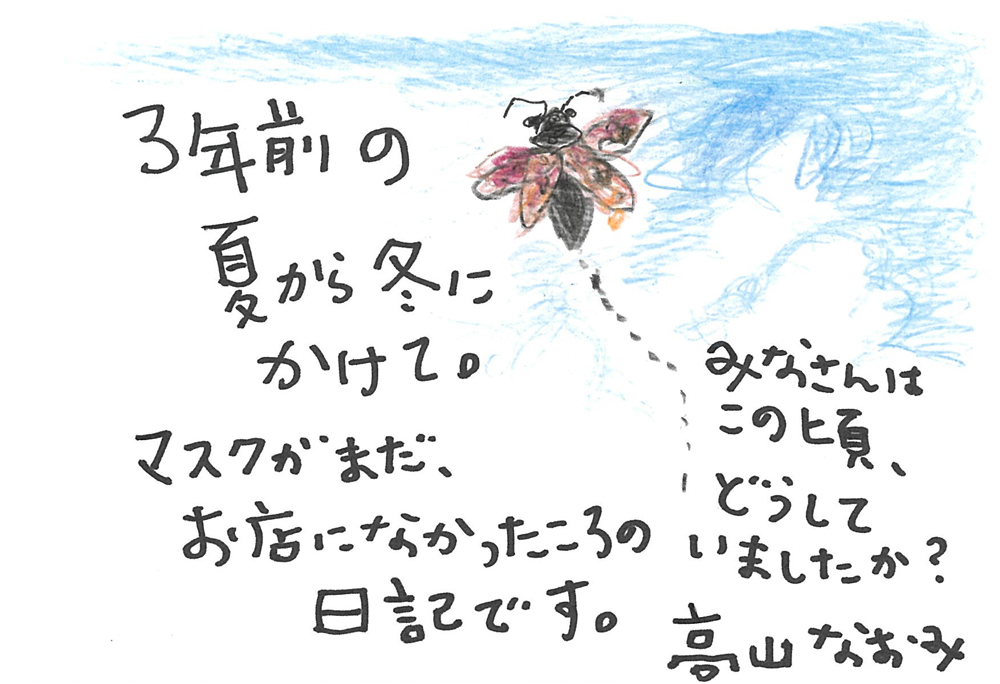 3年前の
夏から冬に
かけて。
マスクがまだ、
お店になかったころの
日記です。
みなさんは
この頃、
どうして
いましたか？
高山なおみ